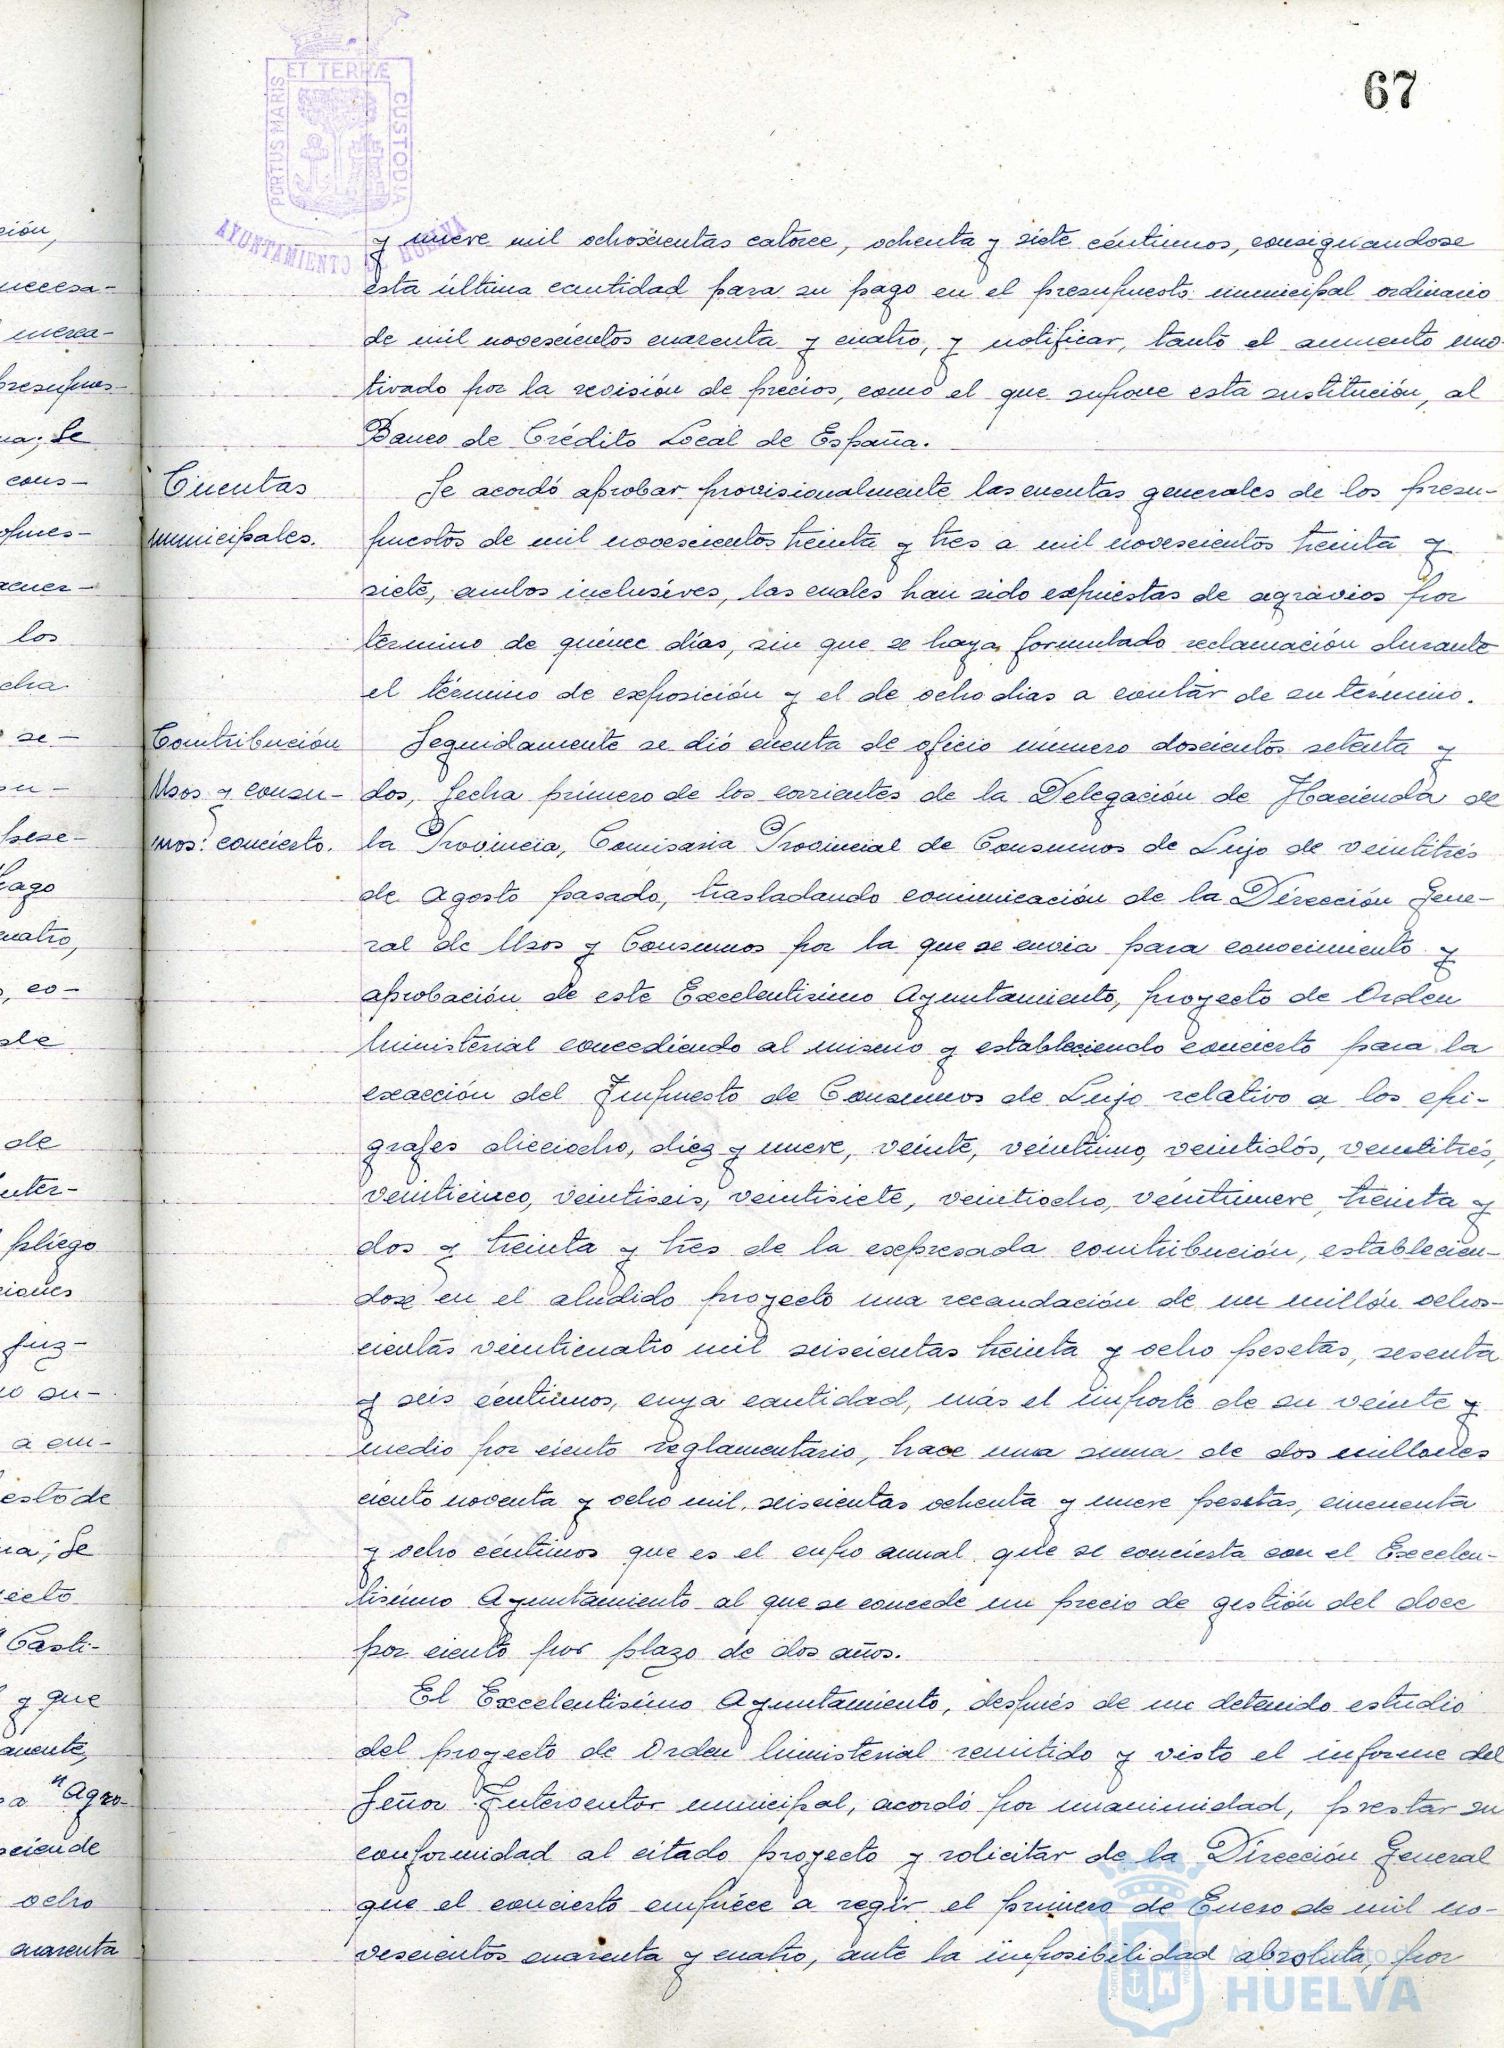 67
ET TERRÆ
PORTUS MARIS
CUSTODIA
AYUNTAMIENTO DE HUELVA
y nueve mil ochoscientas catorce, ochenta y siete céntimos, consignandose
esta última cantidad para su pago en el presupuesto municipal ordinario
de mil novescientos cuarenta y cuatro, y notificar, tanto el aumento mo-
tivado por la revisión de precios, como el que supone esta sustitución, al
Banco de Crédito Local de España.
Cuentas
municipales.
Se acordó aprobar provisionalmente las cuentas generales de los presu-
puestos de mil novescientos treinta y tres a mil novescientos treinta y
siete, ambos inclusives, las cuales han sido expuestas de agravios por
término de quince días, sin que se haya formulado reclamación durante
el término de exposición y el de ocho dias a contar de su término.
Contribución
Usos y consu-
mos: concierto.
Seguidamente se dió cuenta de oficio número doscientos setenta y
dos, fecha primero de los corrientes de la Delegación de Hacienda de
la Provincia, Comisaria Provincial de Consumos de Lujo de veintitrés
de Agosto pasado, trasladando comunicación de la Dirección Gene-
ral de Usos y Consumos por la que se envia para conocimiento y
aprobación de este Excelentísimo Ayuntamiento, proyecto de Orden
Ministerial concediendo al mismo y estableciendo concierto para la
exacción del Impuesto de Consumos de Lujo relativo a los epi-
grafes dieciocho, diez y nueve, veinte, veintiuno, veintidós, veintitrés,
veinticinco, veintiseis, veintisiete, veintiocho, veintinueve, treinta y
dos y treinta y tres de la expresada contribución, establecien-
dose en el aludido proyecto una recaudación de un millón ochos-
cientas veinticuatro mil seiscientas treinta y ocho pesetas, sesenta
y seis céntimos, cuya cantidad, más el importe de su veinte y
medio por ciento reglamentario, hace una suma de dos millones
ciento noventa y ocho mil, seiscientas ochenta y nueve pesetas, cincuenta
y ocho céntimos que es el cupo anual que se concierta con el Excelen-
tísimo Ayuntamiento al que se concede un precio de gestión del doce
por ciento por plazo de dos años.
El Excelentísimo Ayuntamiento, después de un detenido estudio
del proyecto de Orden Ministerial remitido y visto el informe del
Señor Interventor municipal, acordó por unanimidad, prestar su
conformidad al citado proyecto y solicitar de la Dirección General
que el concierto empiece a regir el primero de Enero de mil no-
vescientos cuarenta y cuatro, ante la imposibilidad absoluta, por
Ayuntamiento de
HUELVA
ción,
necesa-
merca-
presupues-
na; Se
cons-
opues-
acuer-
los
cha
se-
su-
pese-
Pago
cuatro,
, co-
ple
de
nter-
pliego
ciones
juz-
no su-
a cu-
esto de
na; Se
yecto
"Casti-
y que
amente,
"Agro-
sciende
ocho
cuarenta